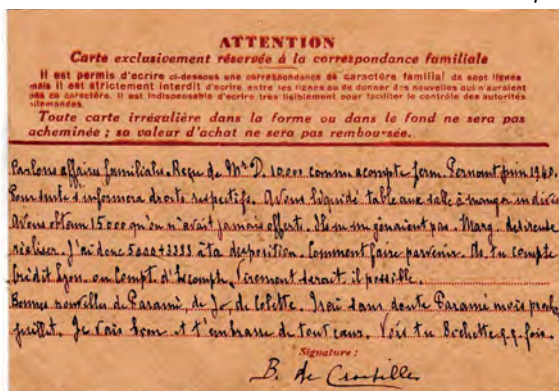 ATTENTION
Carte exclusivement réservée à la correspondance familiale
Il est permis d'ecrire ci-dessous une correspondance de caractère familial de sept lignes
mais il est strictement interdit d'ecrire entre les lignes ou de donner des nouvelles qui n'auraient
pas ce caractère. Il est indispensable d'ecrire très lisiblement pour faciliter le contrôle des autorités
allemandes.
Toute carte irrégulière dans la forme ou dans le fond ne sera pas
acheminée ; sa valeur d'achat ne sera pas remboursée.
Parlons affaires familiales. Reçu de Mr D. 10.000 comme acompte ferm. Pernant juin 1940.
Pour suite s'informera droits respectifs. Avons liquidé tableaux salle à manger indivis
Avons obtenu 15000 qu'on n'avait jamais offert. Ils ne me gênaient pas. Marg. désireuse
réaliser. J'ai donc 5000+3333 à ta disposition. Comment faire parvenir. As tu compte
Crédit Lyon. ou Compt. d'Escompte, virement serait-il possible.
Bonnes nouvelles de Paramé, de J. de Colette. Irai sans doute Paramé mois proch
juillet. Je vais bien et t'embrasse de tout cœur. Vois tu Bichette q.q. fois.
Signature :
B. de